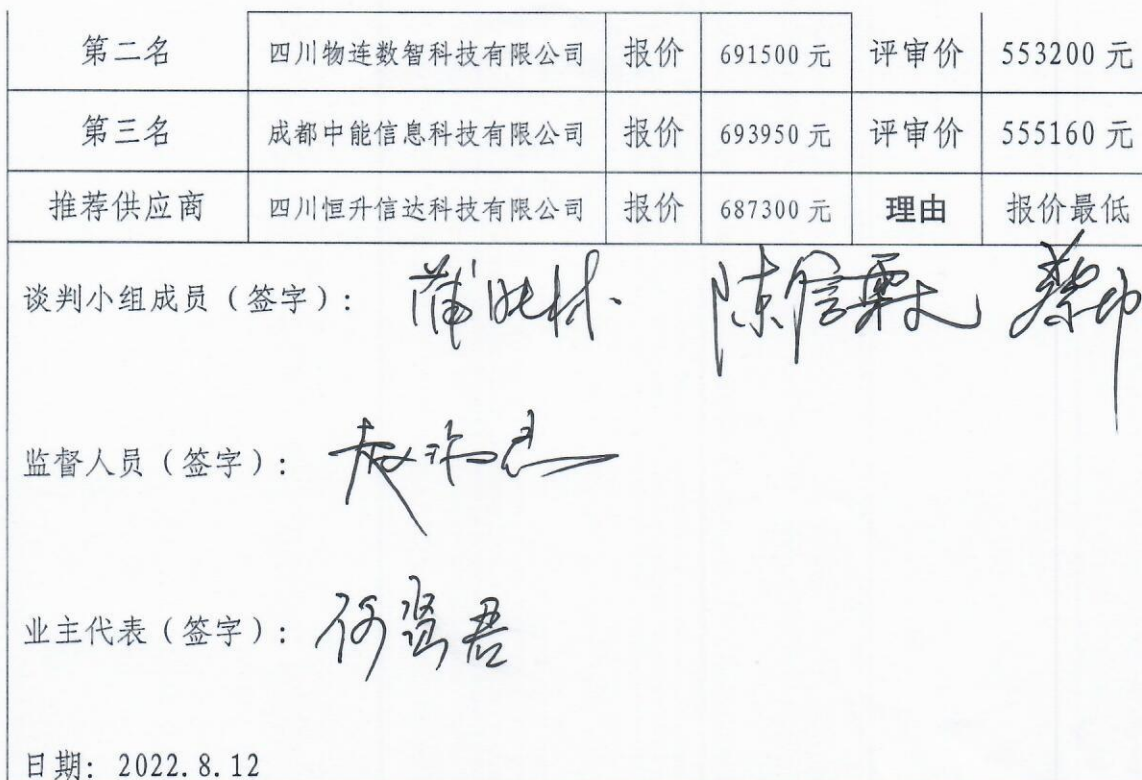 第二名 四川物连数智科技有限公司 报价 691500元 评审价 553200元
第三名 成都中能信息科技有限公司 报价 693950元 评审价 555160元
推荐供应商 四川恒升信达科技有限公司 报价 687300元 理由 报价最低
谈判小组成员（签字）：
监督人员（签字）：
业主代表（签字）：
日期: 2022.8.12